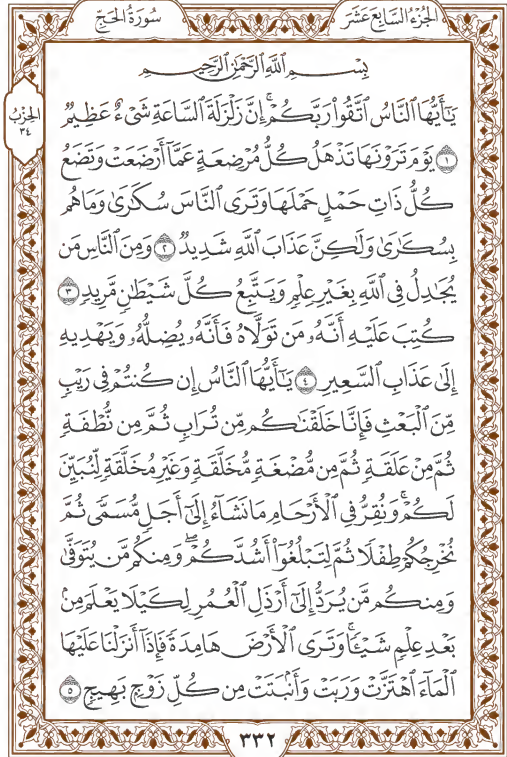 الجُزْءُ السَّابِعَ عَشَرَ
سُورَةُ الحَجّ
بِسْمِ ٱللَّهِ ٱلرَّحْمَٰنِ ٱلرَّحِيمِ
الحِزْبُ
٣٤
يَٰٓأَيُّهَا ٱلنَّاسُ ٱتَّقُوا۟ رَبَّكُمْ ۚ إِنَّ زَلْزَلَةَ ٱلسَّاعَةِ شَىْءٌ عَظِيمٌ
١ يَوْمَ تَرَوْنَهَا تَذْهَلُ كُلُّ مُرْضِعَةٍ عَمَّآ أَرْضَعَتْ وَتَضَعُ
كُلُّ ذَاتِ حَمْلٍ حَمْلَهَا وَتَرَى ٱلنَّاسَ سُكَٰرَىٰ وَمَا هُم
بِسُكَٰرَىٰ وَلَٰكِنَّ عَذَابَ ٱللَّهِ شَدِيدٌ ٢ وَمِنَ ٱلنَّاسِ مَن
يُجَٰدِلُ فِى ٱللَّهِ بِغَيْرِ عِلْمٍ وَيَتَّبِعُ كُلَّ شَيْطَٰنٍ مَّرِيدٍ ٣
كُتِبَ عَلَيْهِ أَنَّهُۥ مَن تَوَلَّاهُ فَأَنَّهُۥ يُضِلُّهُۥ وَيَهْدِيهِ
إِلَىٰ عَذَابِ ٱلسَّعِيرِ ٤ يَٰٓأَيُّهَا ٱلنَّاسُ إِن كُنتُمْ فِى رَيْبٍ
مِّنَ ٱلْبَعْثِ فَإِنَّا خَلَقْنَٰكُم مِّن تُرَابٍ ثُمَّ مِن نُّطْفَةٍ
ثُمَّ مِنْ عَلَقَةٍ ثُمَّ مِن مُّضْغَةٍ مُّخَلَّقَةٍ وَغَيْرِ مُخَلَّقَةٍ لِّنُبَيِّنَ
لَكُمْ ۚ وَنُقِرُّ فِى ٱلْأَرْحَامِ مَا نَشَآءُ إِلَىٰٓ أَجَلٍ مُّسَمًّى ثُمَّ
نُخْرِجُكُمْ طِفْلًا ثُمَّ لِتَبْلُغُوٓا۟ أَشُدَّكُمْ ۖ وَمِنكُم مَّن يُتَوَفَّىٰ
وَمِنكُم مَّن يُرَدُّ إِلَىٰٓ أَرْذَلِ ٱلْعُمُرِ لِكَيْلَا يَعْلَمَ مِنۢ
بَعْدِ عِلْمٍ شَيْـًٔا ۚ وَتَرَى ٱلْأَرْضَ هَامِدَةً فَإِذَآ أَنزَلْنَا عَلَيْهَا
ٱلْمَآءَ ٱهْتَزَّتْ وَرَبَتْ وَأَنۢبَتَتْ مِن كُلِّ زَوْجٍۭ بَهِيجٍ ٥
٣٣٢